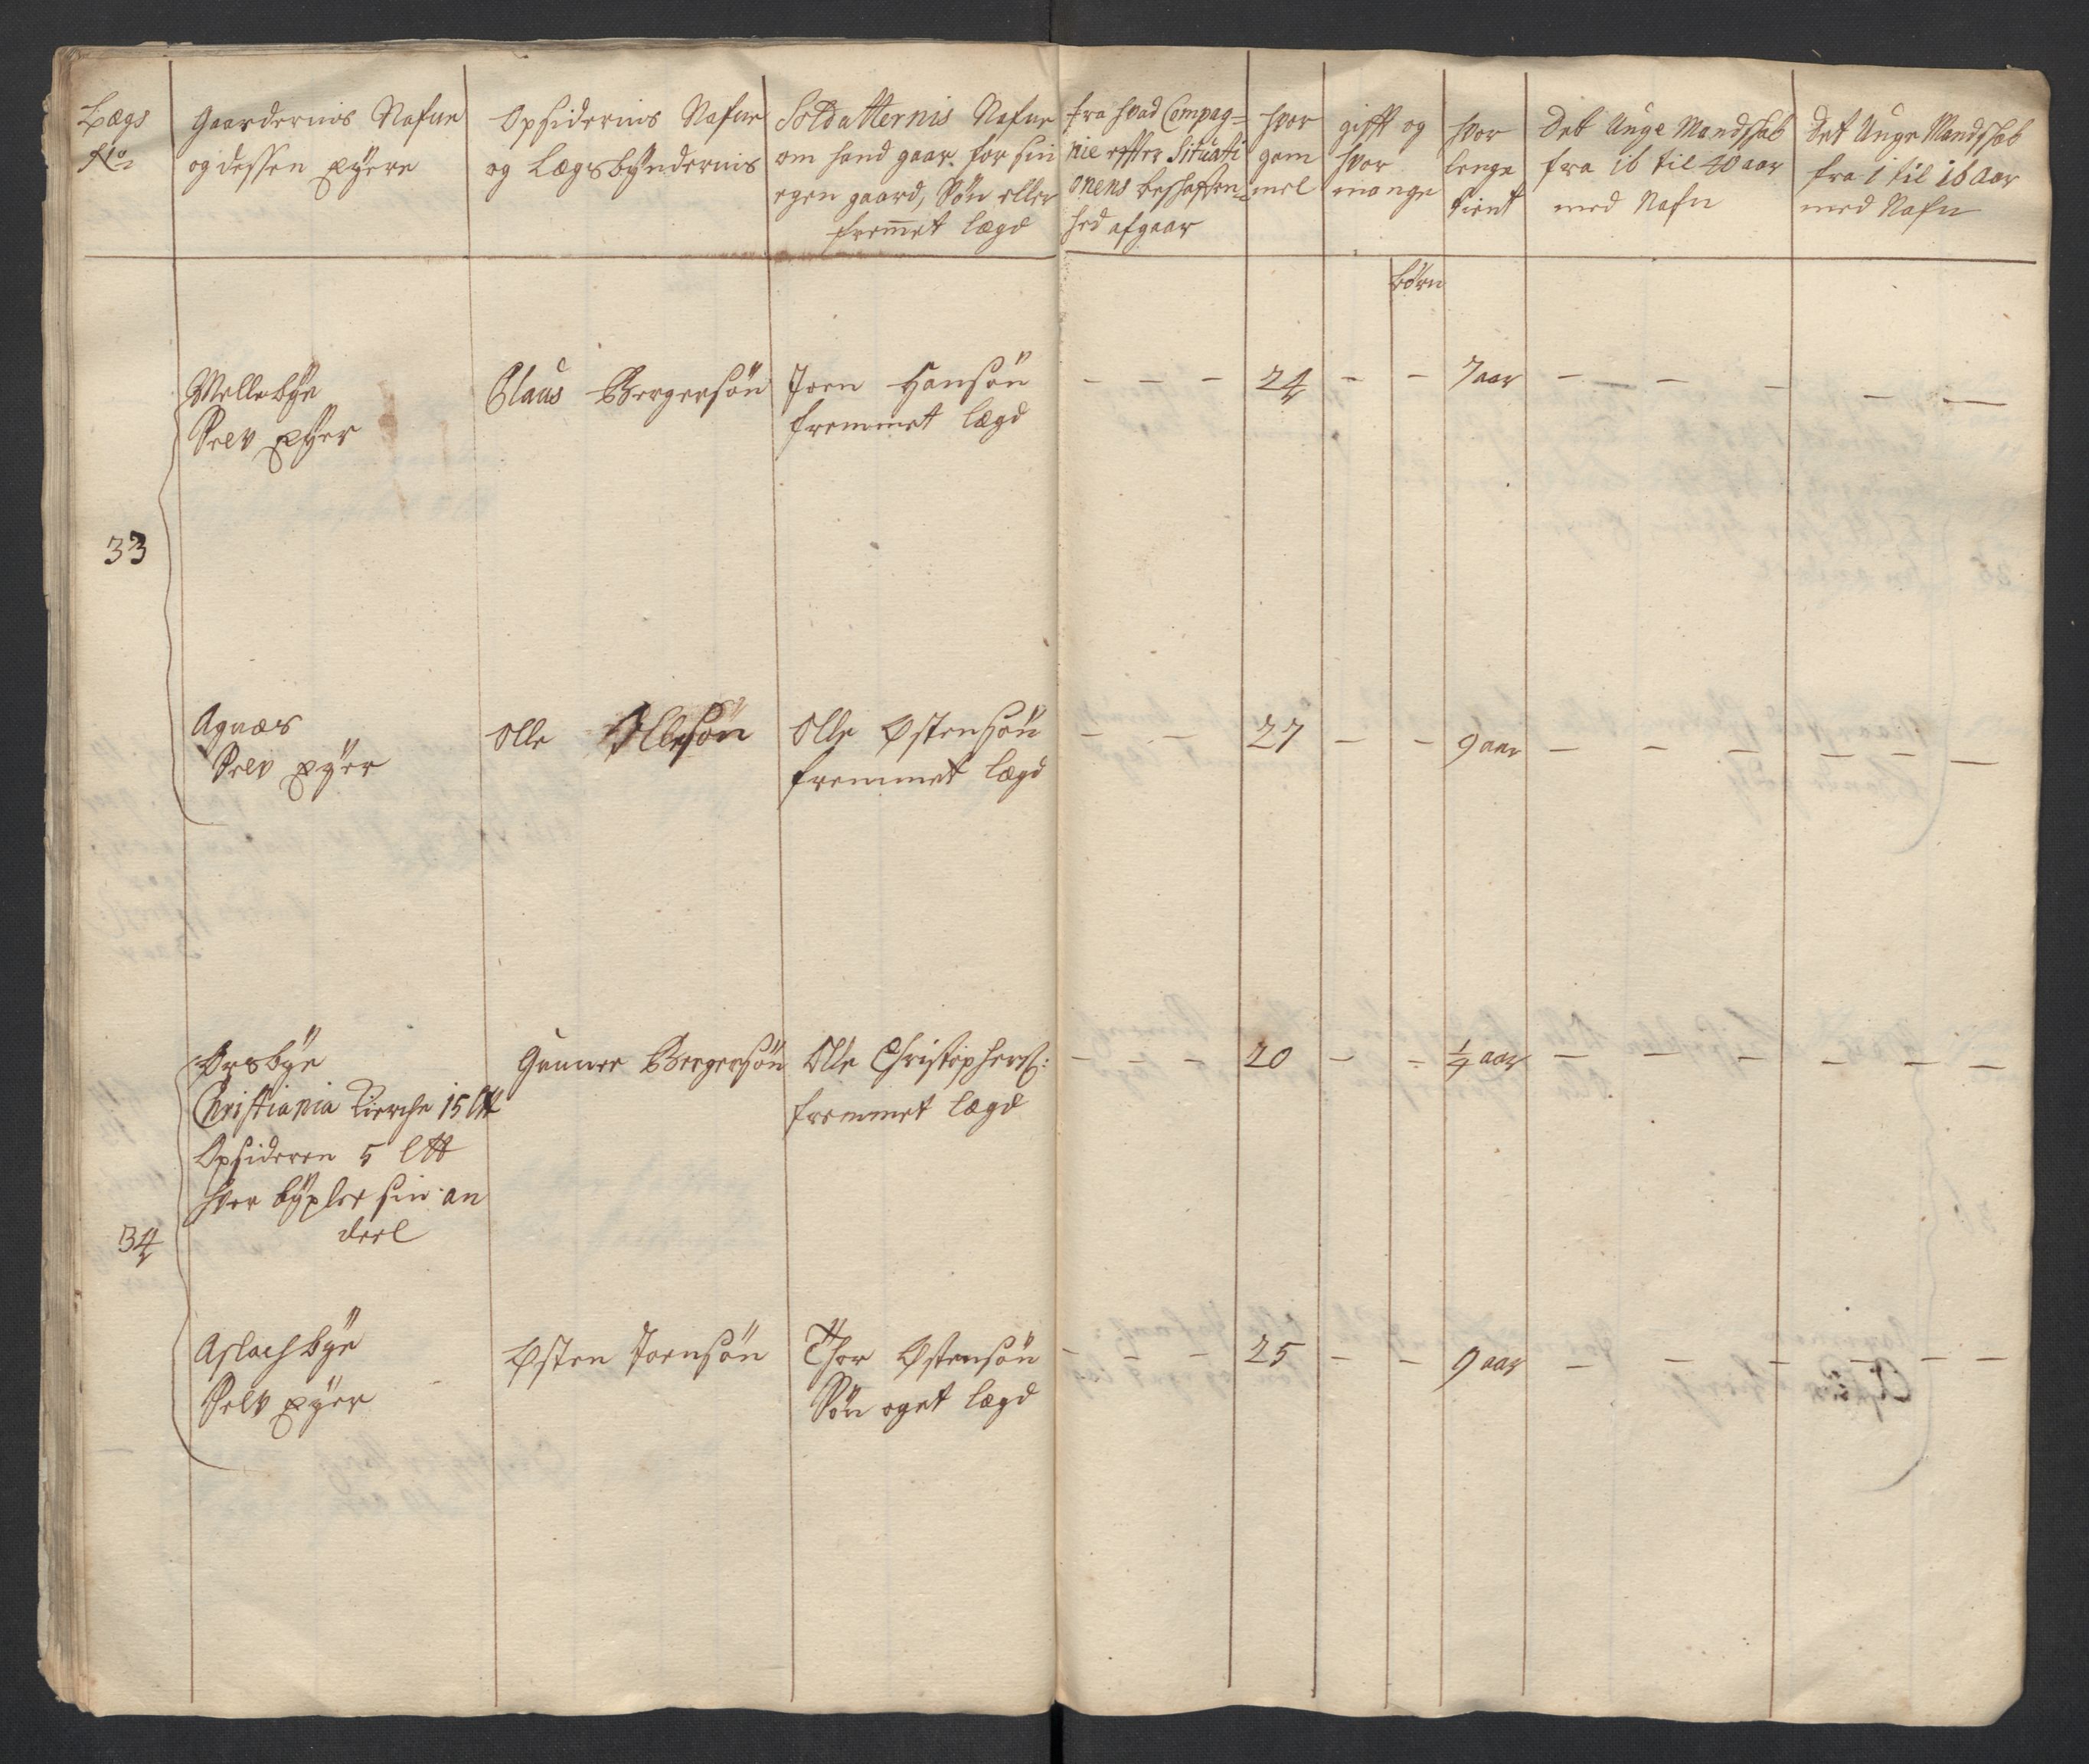 Lægs
No
Gaardernis Nafne
og dessen eÿere
Opsidernis Nafne
og Lægsbÿndernis
Soldatternis Nafne
om hand gaar for sin
egen gaard, Søn eller
fremet lægd
fra hvad Compag=
nie effter Situati
onens beskaffen=
hed afgaar
hvor
gam
mel
gifft og
hvor
mange
hvor
lenge
tient
Det Unge Mandskab
fra 16 til 40 aar
med Nafn
Det Unge Mandskab
fra 1 til 16 aar
med Nafn
børn
33
Mellebÿe
Selv eÿer
Claus Bergersøn
Joen Hansøn
fremmet lægd
- - - 24 - - 7 aar - - - - -
Agnæs
Selv eÿer
Olle Ollesøn
Olle Østensøn
fremmet lægd
- - 27 - - 9 aar - - - - - -
34
Ørsbÿe
Christiania Kierche 15 L℔
Opsideren 5 L℔
hver bÿxler sin an
deel
Gunner Bergersøn
Olle Christophers:
fremmet lægd
- - - 20 - - 1/4 aar - - - - - -
Aslachbÿe
Selv eÿer
Østen Joensøn
Thor Østensøn
Søn eget lægd
- - - 25 - - 9 aar - - - - - -